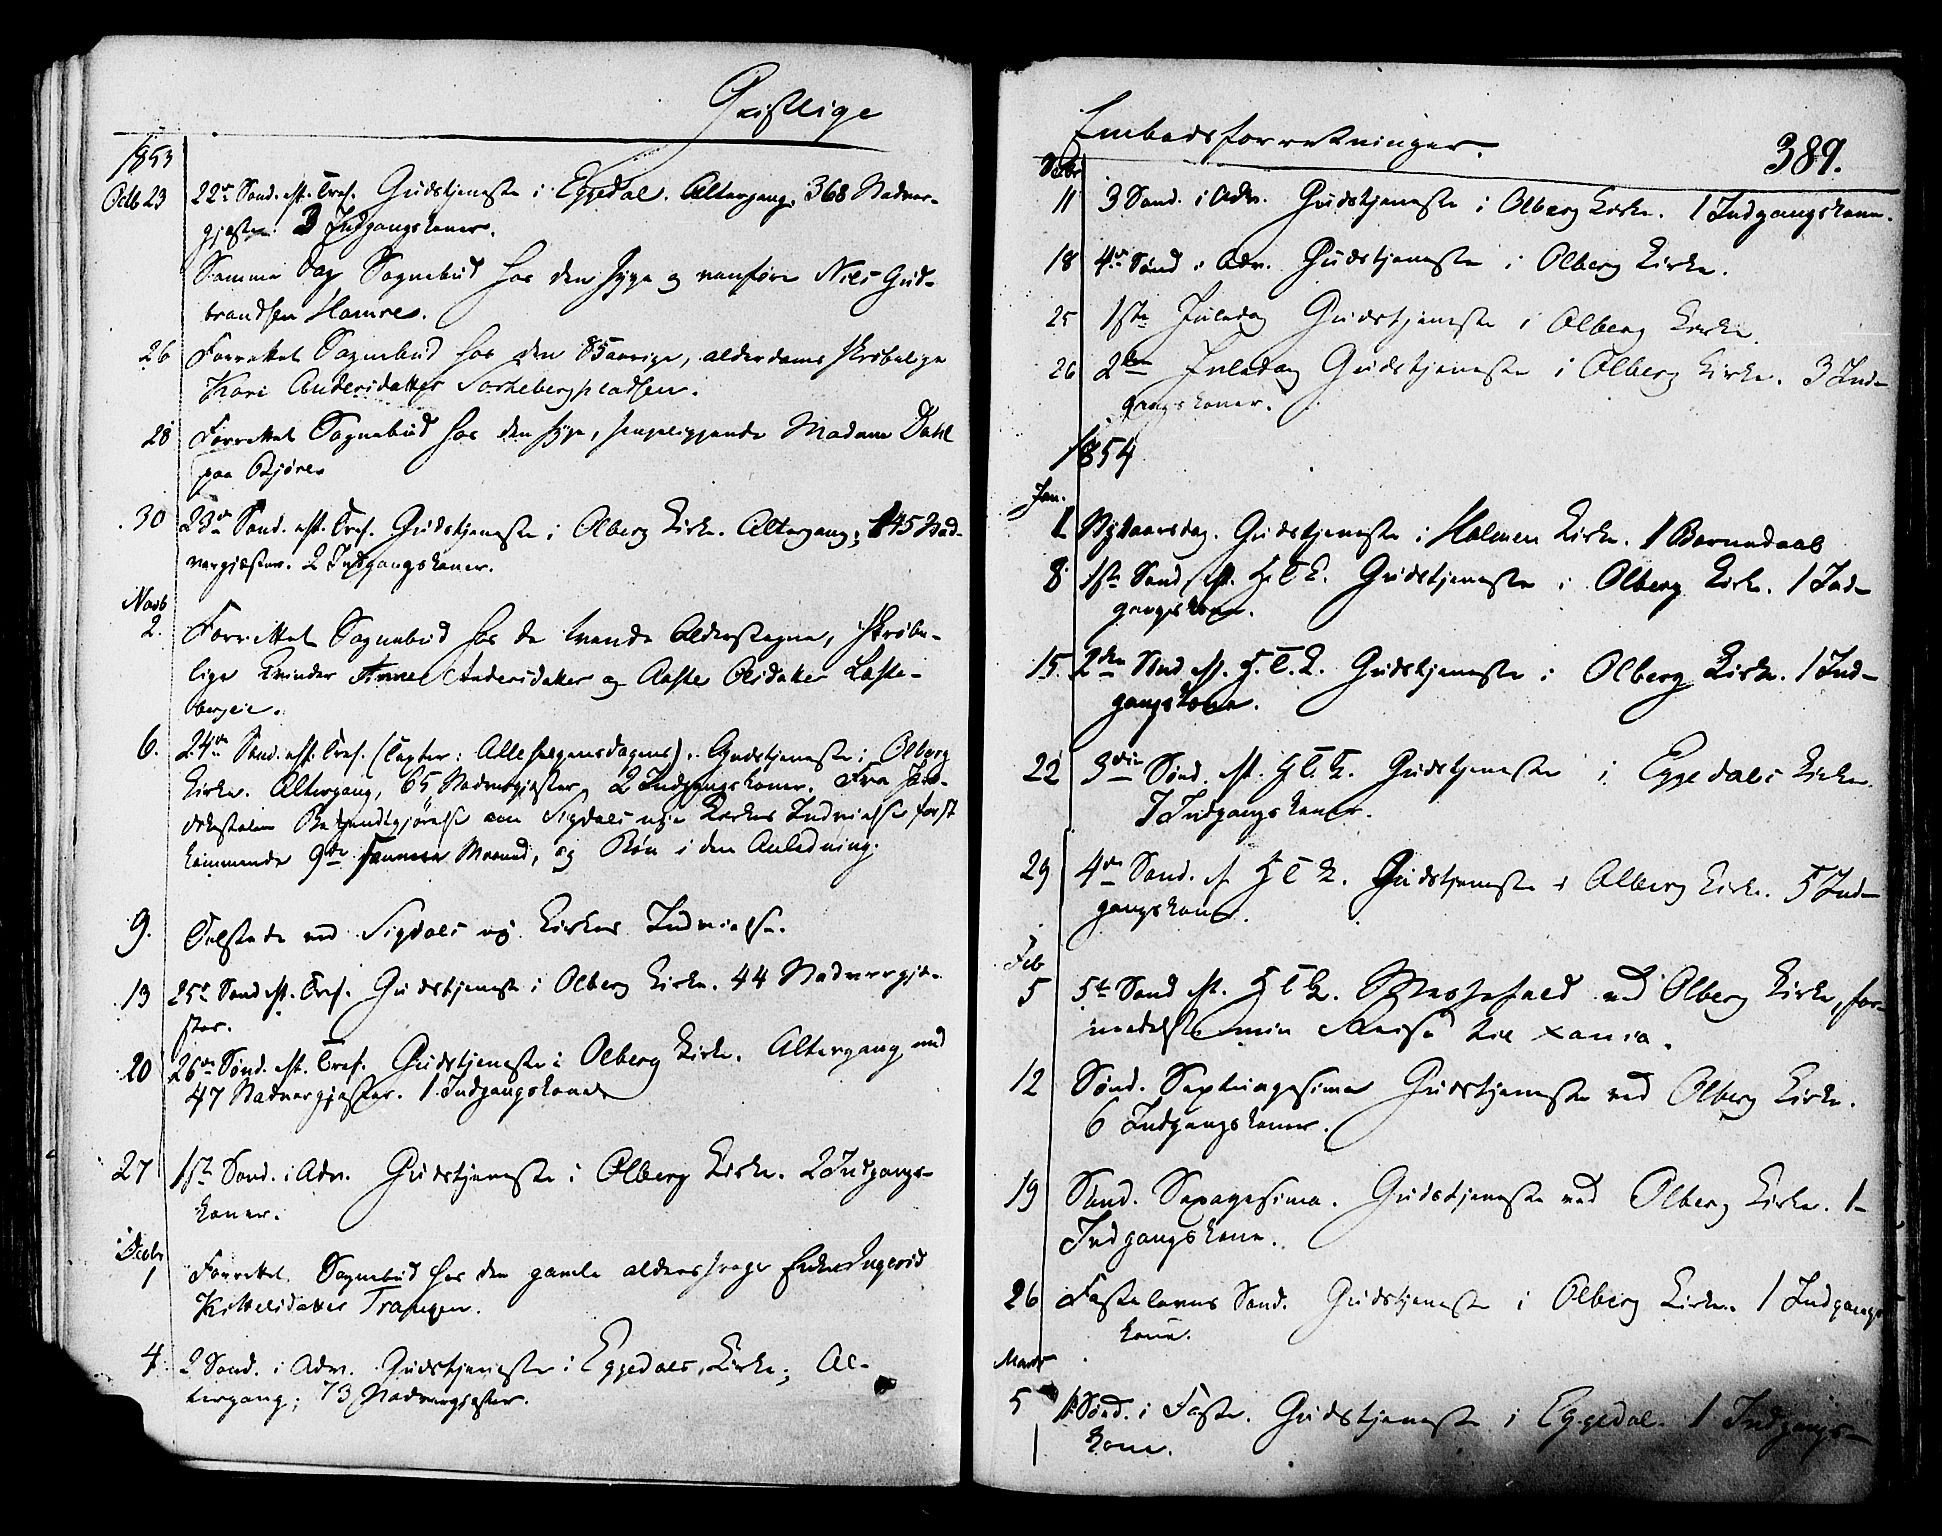 Geistlige
1853
Octb 23 22de Sönd. eft. Tref. Gudstjeneste i Eggedal. Altergang, 368 Nadver-
gjester. 3 Indgangskoner.
Samme Dag Sognebud hos den syge og vanføre Niels Gud-
brandsen Hamre.
26 Forrettet Sognebud hos den 85aarige, alderdoms skrøbelige
Kari Andersdatter Sorkebergpladsen.
28 Forrettet Sognebud hos den syge, sengeliggende Madam Dahl
paa Bjøre
30 23de Sönd. eft. Tref. Gudstjeneste i Olberg Kirke. Altergang; 145 Nad-
vergjæster. 2 Indgangskoner.
Novb
2. Forrettet Sognebud hos de tvende Alderstegne, skrøbe-
lige Kvinder Anne Andersdatter og Aaste Olsdatter
bergeie.
6. 24de Sönd. eft. Tref. (Texter: Allehelgensdagens). Gudstjeneste i Olberg
Kirke. Altergang, 65 Nadvergjester, 2 Indgangskoner. Fra Præ-
dikestolen Bekjendtgjørelse om Sigdals nye Kirkes Indvielse først
kommende 9de Samme Maaned, og Bøn i den Anledning.
9. Tilstede ved Sigdals nye Kirkes Indvielse.
13 25de Sönd. eft. Tref. Gudstjeneste i Olberg Kirke. 44 Nadvergje-
ster.
20 26de Sønd. eft. Tref. Gudstjeneste i Olberg Kirke. Altergang med
47 Nadvergjester. 1 Indgangskone
27 1ste Sönd. i Adv. Gudstjeneste i Olberg Kirke. 2 Indgangs-
koner.
Decbr
1 Forrettet Sognebud hos den gamle aldersvage Enke Ingerid
Kittelsdatter
4. 2 Sönd. i Adv. Gudstjeneste i Eggedals Kirke; Al-
tergang; 73 Nadvergjester.
Embedsforretninger.
389.
Decbr
11 3 Sönd. i Adv. Gudstjeneste i Olberg Kirke. 1 Indgangskone.
18 4de Sönd i Adv. Gudstjeneste i Olberg Kirke.
25 1ste Juledag Gudstjeneste i Olberg Kirke.
26 2den Juledag Gudstjeneste i Olberg Kirke. 3 Ind-
gangskoner.
1854
Jan.
1 Nytaarsdag. Gudstjeneste i Holmen Kirke. 1 Barnedaab
8 1ste Sönd eft. H. T. K. Gudstjeneste i Olberg Kirke. 1 Ind-
gangskone.
15 2den Sönd eft. H. T. K. Gudstjeneste i Olberg Kirke. 1 Ind-
gangskone.
22 3die Sönd. eft. H. T. K. Gudstjeneste i Eggedals Kirke.
7 Indgangskoner.
29 4de Sönd. ef H T K. Gudstjeneste i Olberg Kirke. 5 Ind-
gangskoner.
Feb
5 5te Sönd eft. H T K. Messefald ved Olberg Kirke, for-
medelst min Reise til Xania.
12 Sönd. Septuagesima Gudstjeneste ved Olberg Kirke.
6 Indgangskoner.
19 Sönd. Sexagesima. Gudstjeneste ved Olberg Kirke. 1-
Indgangskone.
26 Fastelavns Sönd. Gudstjeneste i Olberg Kirke. 1 Indgangs
kone.
Marts
5 1 Sönd. i Faste. Gudstjeneste i Eggedal. 1 Indgangs-
kone.